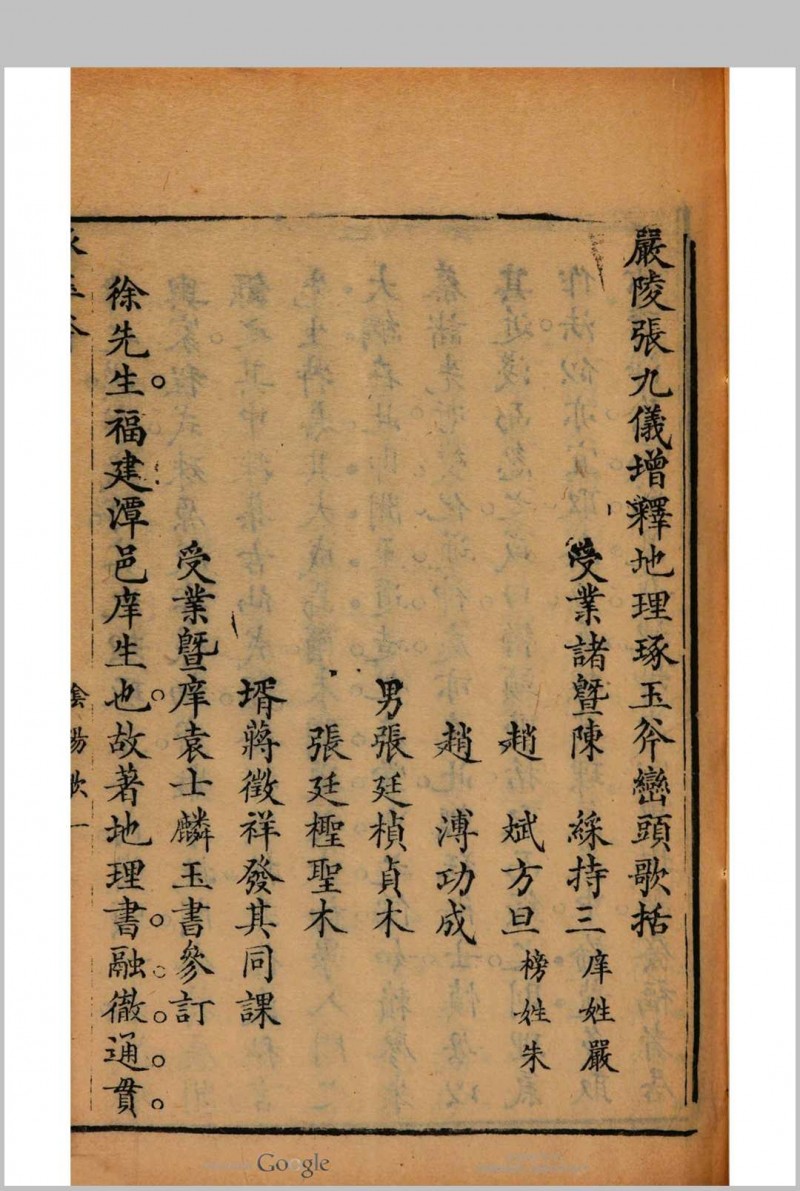 嚴陵張九儀增釋地理琢玉斧巒頭歌括
受業諸暨陳 綵持三 庠姓嚴
趙 斌方旦 榜姓朱
趙 溥功成
男張廷楨貞木
張廷檉聖木
壻蔣徵祥發其同課
受業暨庠袁士麟玉書參訂
徐先生。福建潭邑庠生也。故著地理書。融。徹。通。貫。
陽歌一
Google